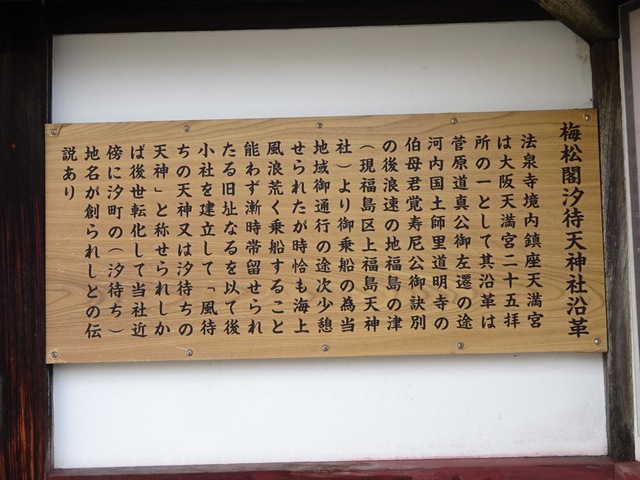 梅松閣汐待天神社沿革
法泉寺境内鎮座天満宮
は大阪天満宮二十五拝
所の一として其沿革は
菅原道真公御左遷の途
河内国土師里道明寺の
伯母君覚寿尼公御訣別
の後浪速の地福島の津
（現福島区上福島天神
社）より御乗船の為当
地域御通行の途次少憩
せられたが時恰も海上
風浪荒く乗船すること
能わず漸時帯留せられ
たる旧址なるを以て後
小社を建立して「風待
ちの天神又は汐待ちの
天神」と称せられしか
ば後世転化して当社近
傍に汐町の（汐待ち）
地名が創られしとの伝
説あり